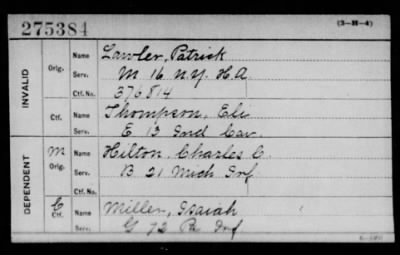 275384 (3-H-4)
INVALID
Orig. Name Lawler, Patrick
Serv. M 16 N.Y. H.A.
Ctf. No. 376814
Ctf. Name Thompson, Eli
Serv. E 13 Ind Cav.
DEPENDENT
M Orig. Name Hilton, Charles C.
Serv. B 21 Mich Inf
Ctf. No.
C Ctf. Name Miller, Isaiah
Serv. G 72 Pa Inf